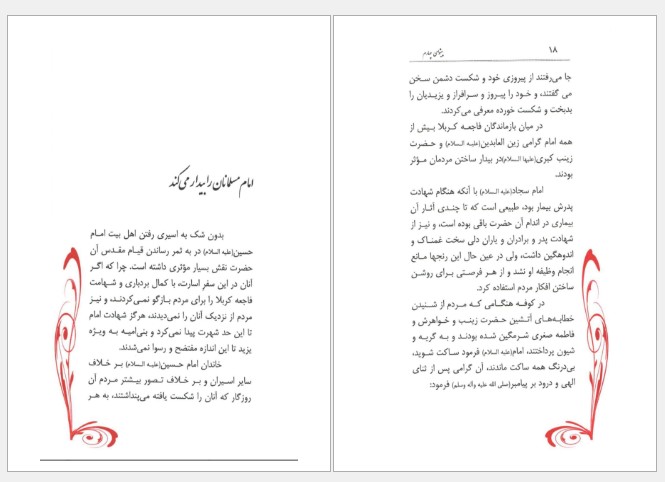 امام مسلمانان را بیدار می‌کند
بدون شک به اسیری رفتن اهل بیت امام
حسین(علیه السلام) در به ثمر رساندن قیام مقدس آن
حضرت نقش بسیار مؤثری داشته است، چرا که اگر
آنان در این سفرِ اسارت، با کمال بردباری و شهامت
فاجعه کربلا را برای مردم بازگو نمی‌کردند، و نیز
مردم از نزدیک آنان را نمی‌دیدند، هرگز شهادت امام
تا این حد شهرت پیدا نمی‌کرد و بنی‌امیه به ویژه
یزید تا این اندازه مفتضح و رسوا نمی‌شدند.
خاندان امام حسین(علیه السلام) بر خلاف
سایر اسیران و بر خلاف تصور بیشتر مردم آن
روزگار که آنان را شکست یافته می‌پنداشتند، به هر
۱۸
پیشوای چهارم
جا می‌رفتند از پیروزی خود و شکست دشمن سخن
می گفتند، و خود را پیروز و سرافراز و یزیدیان را
بدبخت و شکست خورده معرفی می‌کردند.
در میان بازماندگان فاجعه کربلا بیش از
همه امام گرامی زین العابدین(علیه السلام) و حضرت
زینب کبری(علیها السلام)در بیدار ساختن مردمان مؤثر
بودند.
امام سجاد(علیه السلام) با آنکه هنگام شهادت
پدرش بیمار بود، طبیعی است که تا چندی آثار آن
بیماری در اندام آن حضرت باقی بوده است، و نیز از
شهادت پدر و برادران و یاران دلی سخت غمناک و
اندوهگین داشت، ولی در عین حال این رنجها مانع
انجام وظیفه او نشد و از هر فرصتی برای روشن
ساختن افکار مردم استفاده کرد.
در کوفه هنگامی که مردم از شنیدن
خطابه‌های آتشین حضرت زینب و خواهرش و
فاطمه صغری شرمگین شده بودند و به گریه و
شیون پرداختند، امام(علیه السلام) فرمود ساکت شوید،
بی‌درنگ همه ساکت ماندند، آن گرامی پس از ثنای
الهی و درود بر پیامبر(صلی الله علیه وآله وسلم) فرمود: